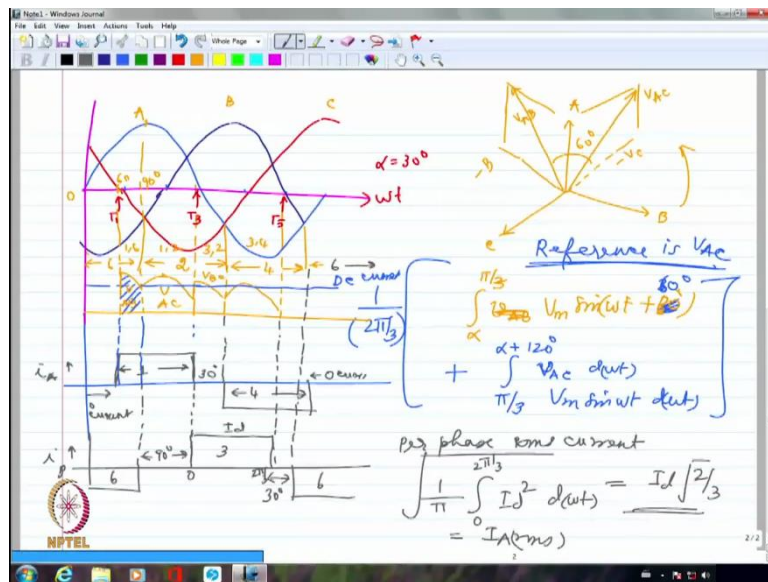 Note1 - Windows Journal
File Edit View Insert Actions Tools Help
Whole Page
A B C
0
60 90°
α = 30°
ωt
T1 T3 T5
1,6 1,2 3,2 3,4
6 2 4 6
V AC
DC current
iA
1 30° 4
0 current
0 current
Id
6 90° 3 6
0 30°
NPTEL
VAB A VAC
60°
-B -VC
C B
Reference is VAC
1
(2π/3)
π/3
∫ Vm sin(ωt + 60°)
α
α + 120°
+ ∫ VAC d(ωt)
π/3 Vm sin ωt d(ωt)
Per phase rms current
2π/3
√ 1/π ∫ Id² d(ωt) = Id √2/3
0
= IA(rms)
2/2